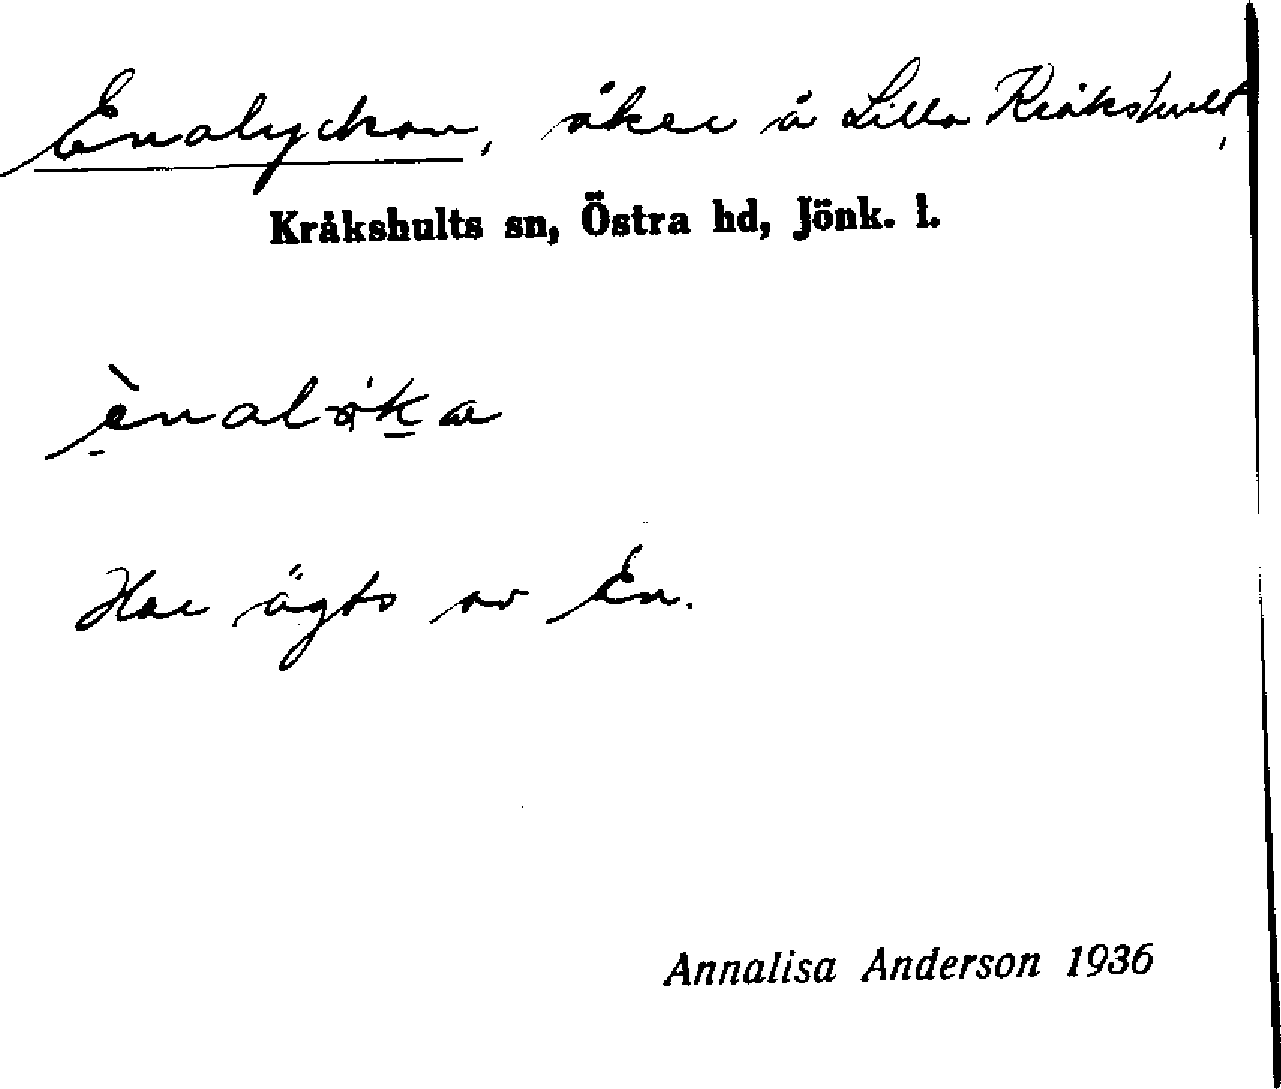 Enalyckan, åker å Lilla Kråkshult,
Kråkshults sn, Östra hd, Jönk. l.
ènaløka
Har ägts av En.
Annalisa Anderson 1936